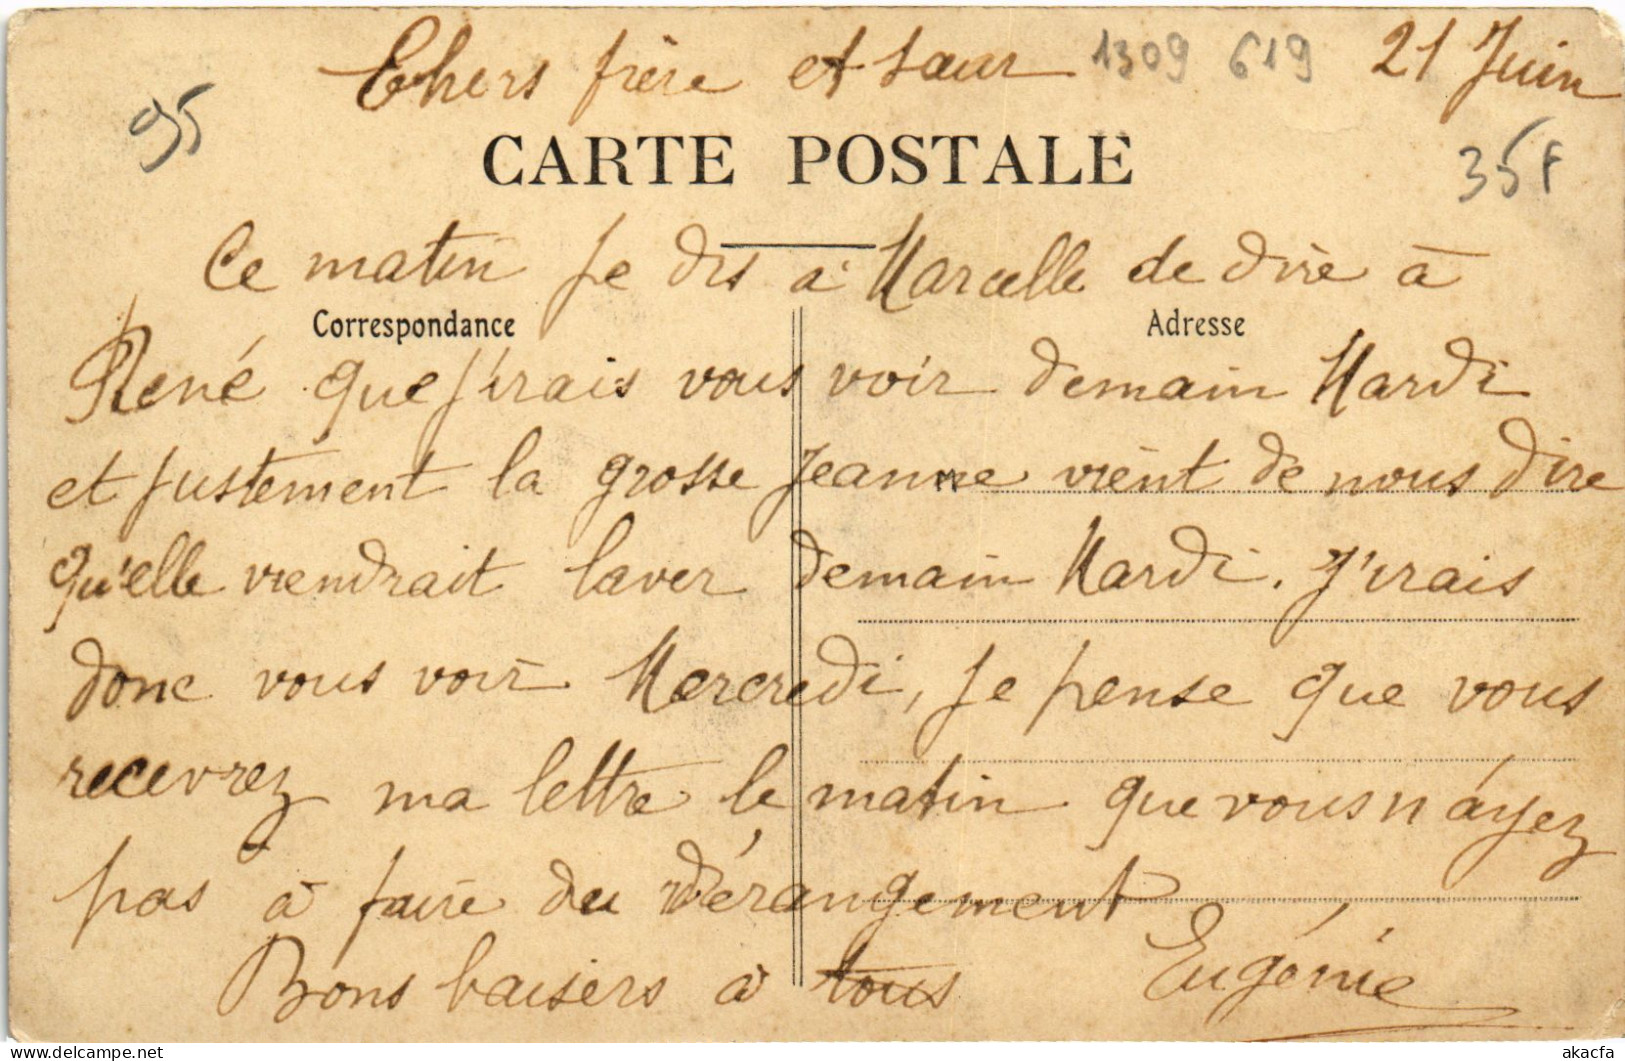 Chers frère et sœur 1309 619 21 Juin
95
CARTE POSTALE
35F
Ce matin je dis à Marcelle de dire à
Correspondance Adresse
René que j'irais vous voir demain Mardi
et justement la grosse Jeanne vient de nous dire
qu'elle viendrait laver demain Mardi. J'irais
donc vous voir Mercredi, je pense que vous
recevrez ma lettre le matin que vous n'ayez
pas à faire du dérangement
Bons baisers à tous Eugénie
akacfa